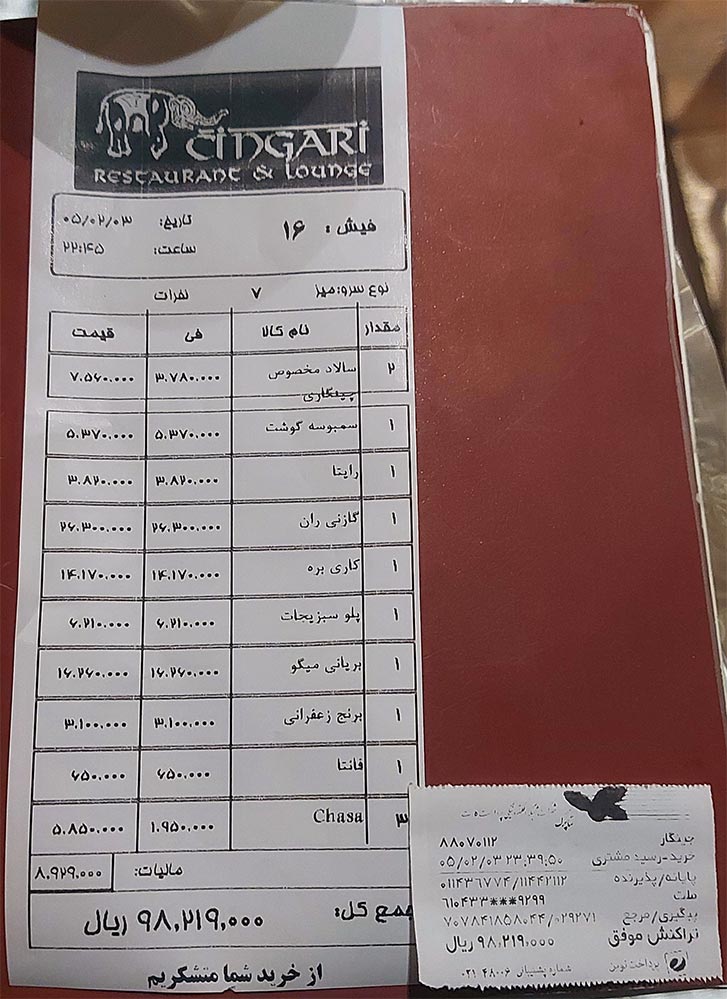 CINGARI
RESTAURANT & LOUNGE
فیش : ۱۶
تاریخ: ۰۵/۰۲/۰۳
ساعت: ۲۲:۴۵
نوع سرو:میز ۷ نفرات
مقدار نام کالا فی قیمت
۲ سالاد مخصوص ۳.۷۸۰.۰۰۰ ۷.۵۶۰.۰۰۰
چینگاری
۱ سمبوسه گوشت ۵.۳۷۰.۰۰۰ ۵.۳۷۰.۰۰۰
۱ رایتا ۳.۸۲۰.۰۰۰ ۳.۸۲۰.۰۰۰
۱ گازنی ران ۲۶.۳۰۰.۰۰۰ ۲۶.۳۰۰.۰۰۰
۱ کاری بره ۱۴.۱۷۰.۰۰۰ ۱۴.۱۷۰.۰۰۰
۱ پلو سبزیجات ۶.۲۱۰.۰۰۰ ۶.۲۱۰.۰۰۰
۱ بریانی میگو ۱۶.۲۶۰.۰۰۰ ۱۶.۲۶۰.۰۰۰
۱ برنج زعفرانی ۳.۱۰۰.۰۰۰ ۳.۱۰۰.۰۰۰
۱ فانتا ۶۵۰.۰۰۰ ۶۵۰.۰۰۰
۳ Chasa ۱.۹۵۰.۰۰۰ ۵.۸۵۰.۰۰۰
مالیات: ۸,۹۲۹,۰۰۰
جمع کل: ۹۸,۲۱۹,۰۰۰ ریال
از خرید شما متشکریم
چینگار ۸۸۰۷۰۱۱۲
خرید-رسید مشتری ۰۵/۰۲/۰۳ ۲۳:۳۹:۵۰
پایانه/پذیرنده ۰۱۱۴۳۶۷۷۴/۱۱۴۴۲۱۱۲
ملت ۶۱۰۴۳۳***۹۲۹۹
پیگیری/مرجع ۷۰۷۸۴۱۸۵۸۰۴۴/۰۲۹۲۷۱
تراکنش موفق ۹۸,۲۱۹,۰۰۰ ریال
پرداخت نوین شماره پشتیبانی ۰۲۱ ۴۸۰۰۶